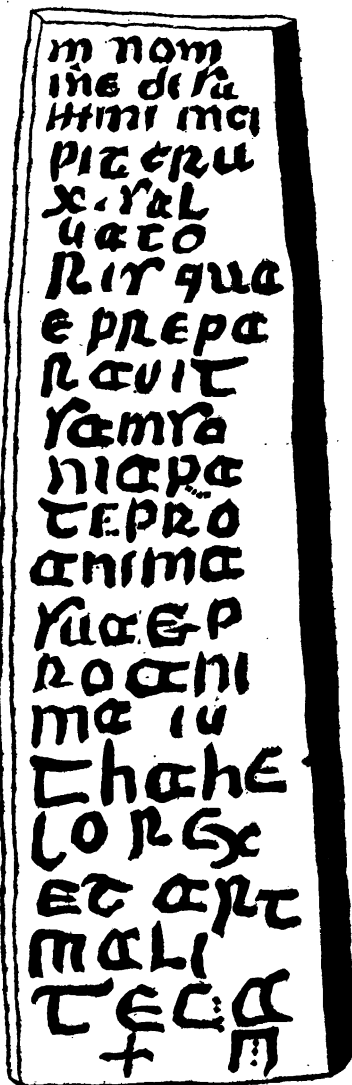 in nom
ine di su
mmi inci
pit cru
x sal
uato
ris qua
e prepa
rauit
samso
ni apa
te pro
anima
sua & p
ro ani
ma iu
thahe
lo rex
et art
mali
teca
+ m